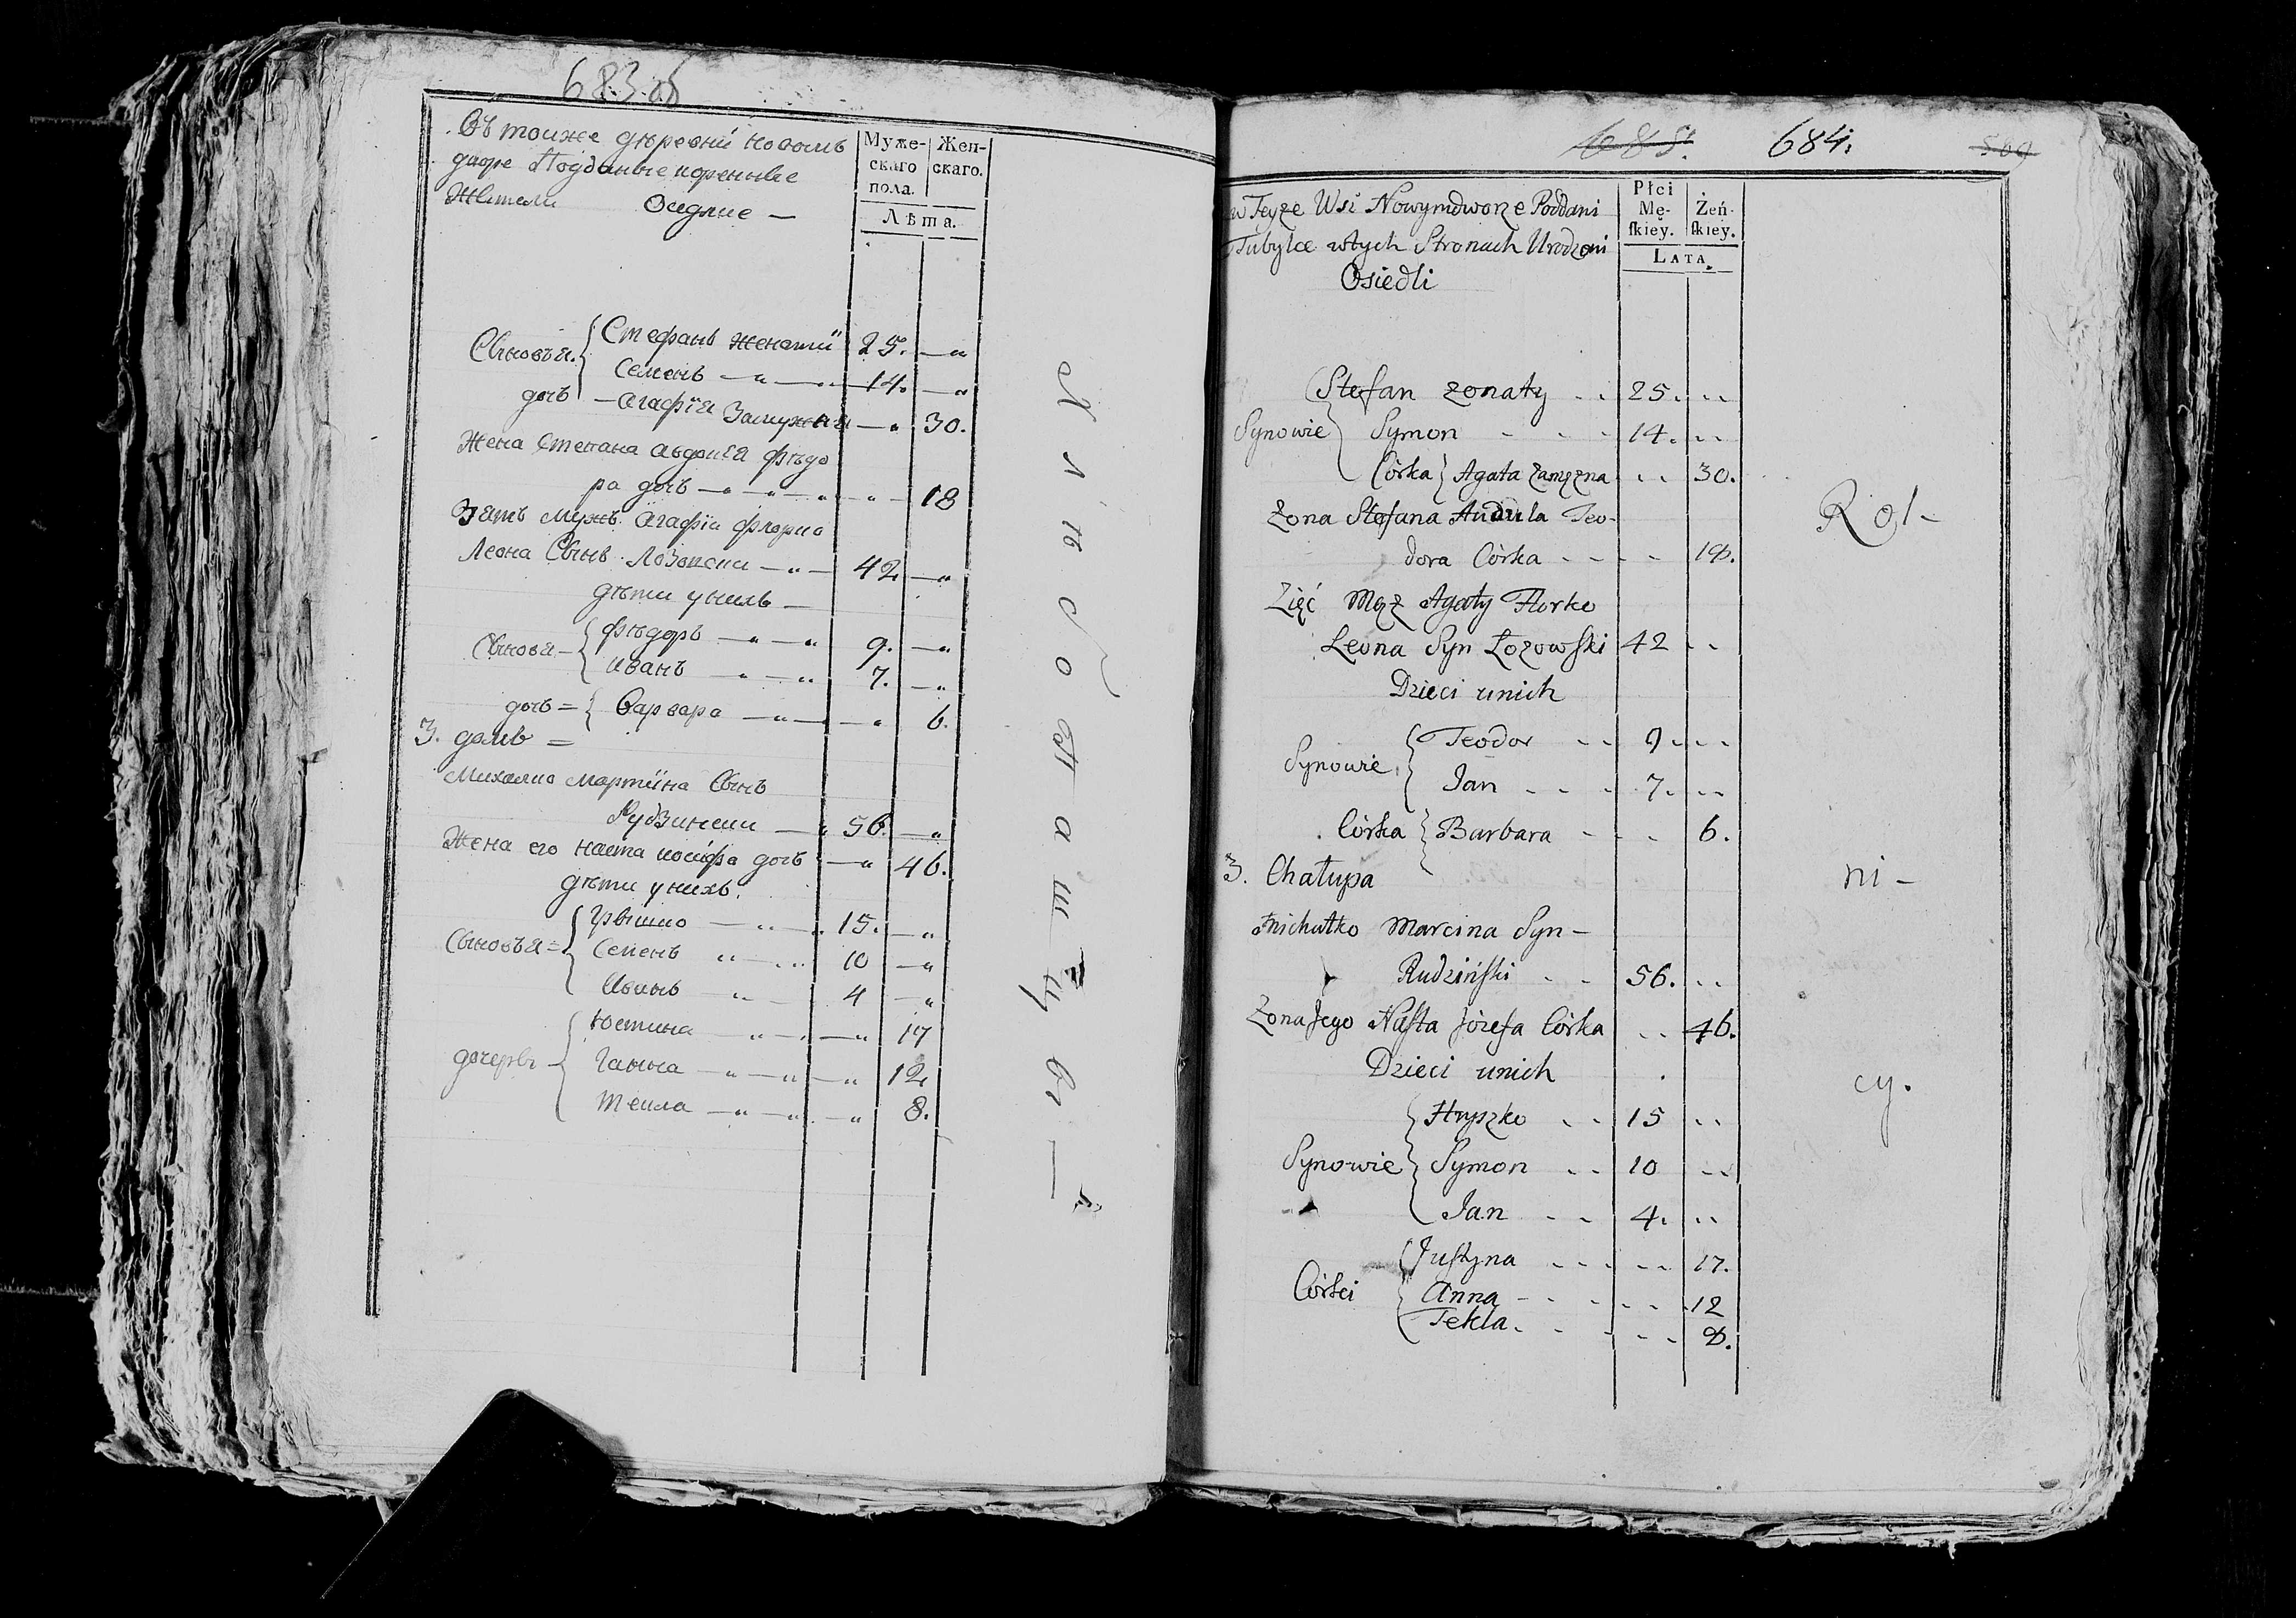 683 об
Въ тоиже дѣревнѣ Новомъ
дворе Подданые коренные
Жители Оседлые —
Муже-
скаго
пола.
Жен-
скаго.
Лѣта.
Сыновья. { Стефанъ женатый 25. — "
Семенъ — " — " 14. — "
дочъ — Агафiя Замужня — " 30.
Жена Степана Авдотiя Фѣдо
ра дочъ — " — " — " — 18
Зять Мужъ Агафiи Флорко
Леона Сынъ Лозовски — " — 42. — "
дѣти у нихъ —
Сыновя — { Фѣдоръ — " — " 9. — "
Иванъ — " — " 7. — "
дочъ = { Варвара — " — — " 6.
3. домъ =
Михалко Мартiна Сынъ
Рудзински — " 56. — "
Жена его Наста Иосифа дочъ — " 46.
дѣти у нихъ.
Сыновья = { Грышко — " — " 15. — "
Семенъ " — " 10 — "
Иванъ — " — 4 — "
дочеръи — { Юстина — " — " — " 17
Ганна — " — " — " 12.
Текла — " — " — " 8.
684.
w Teyze Wsi Nowymdworze Poddani
Tubylce wtych Stronach Urodzeni
Osiedli
Płci
Mę-
skiey.
Żeń-
skiey.
LATA.
Synowie { Stefan zonaty - - 25. - -
Symon - - - 14. - -
Córka } Agata Zamęzna - - 30.
Zona Stefana Audula Teo-
dora Córka - - - - 18.
Zięć Męz Agaty Florko
Leona Syn Łozowski 42 - -
Dzieci unich
Synowie { Teodor - - 9. - -
Jan - - - 7. - -
Córka } Barbara - - - 6.
3. Chałupa
Michałko Marcina Syn -
Rudziński - - 56. - -
Zona Jego Nasta Józefa Córka - - 46.
Dzieci unich
Synowie { Hryszko - - 15 - -
Symon - - 10 - -
Jan - - 4. - -
Córki { Justyna - - - - - 17.
Anna - - - - - 12
Tekla - - - - - 8.
Rol-
ni-
cy.